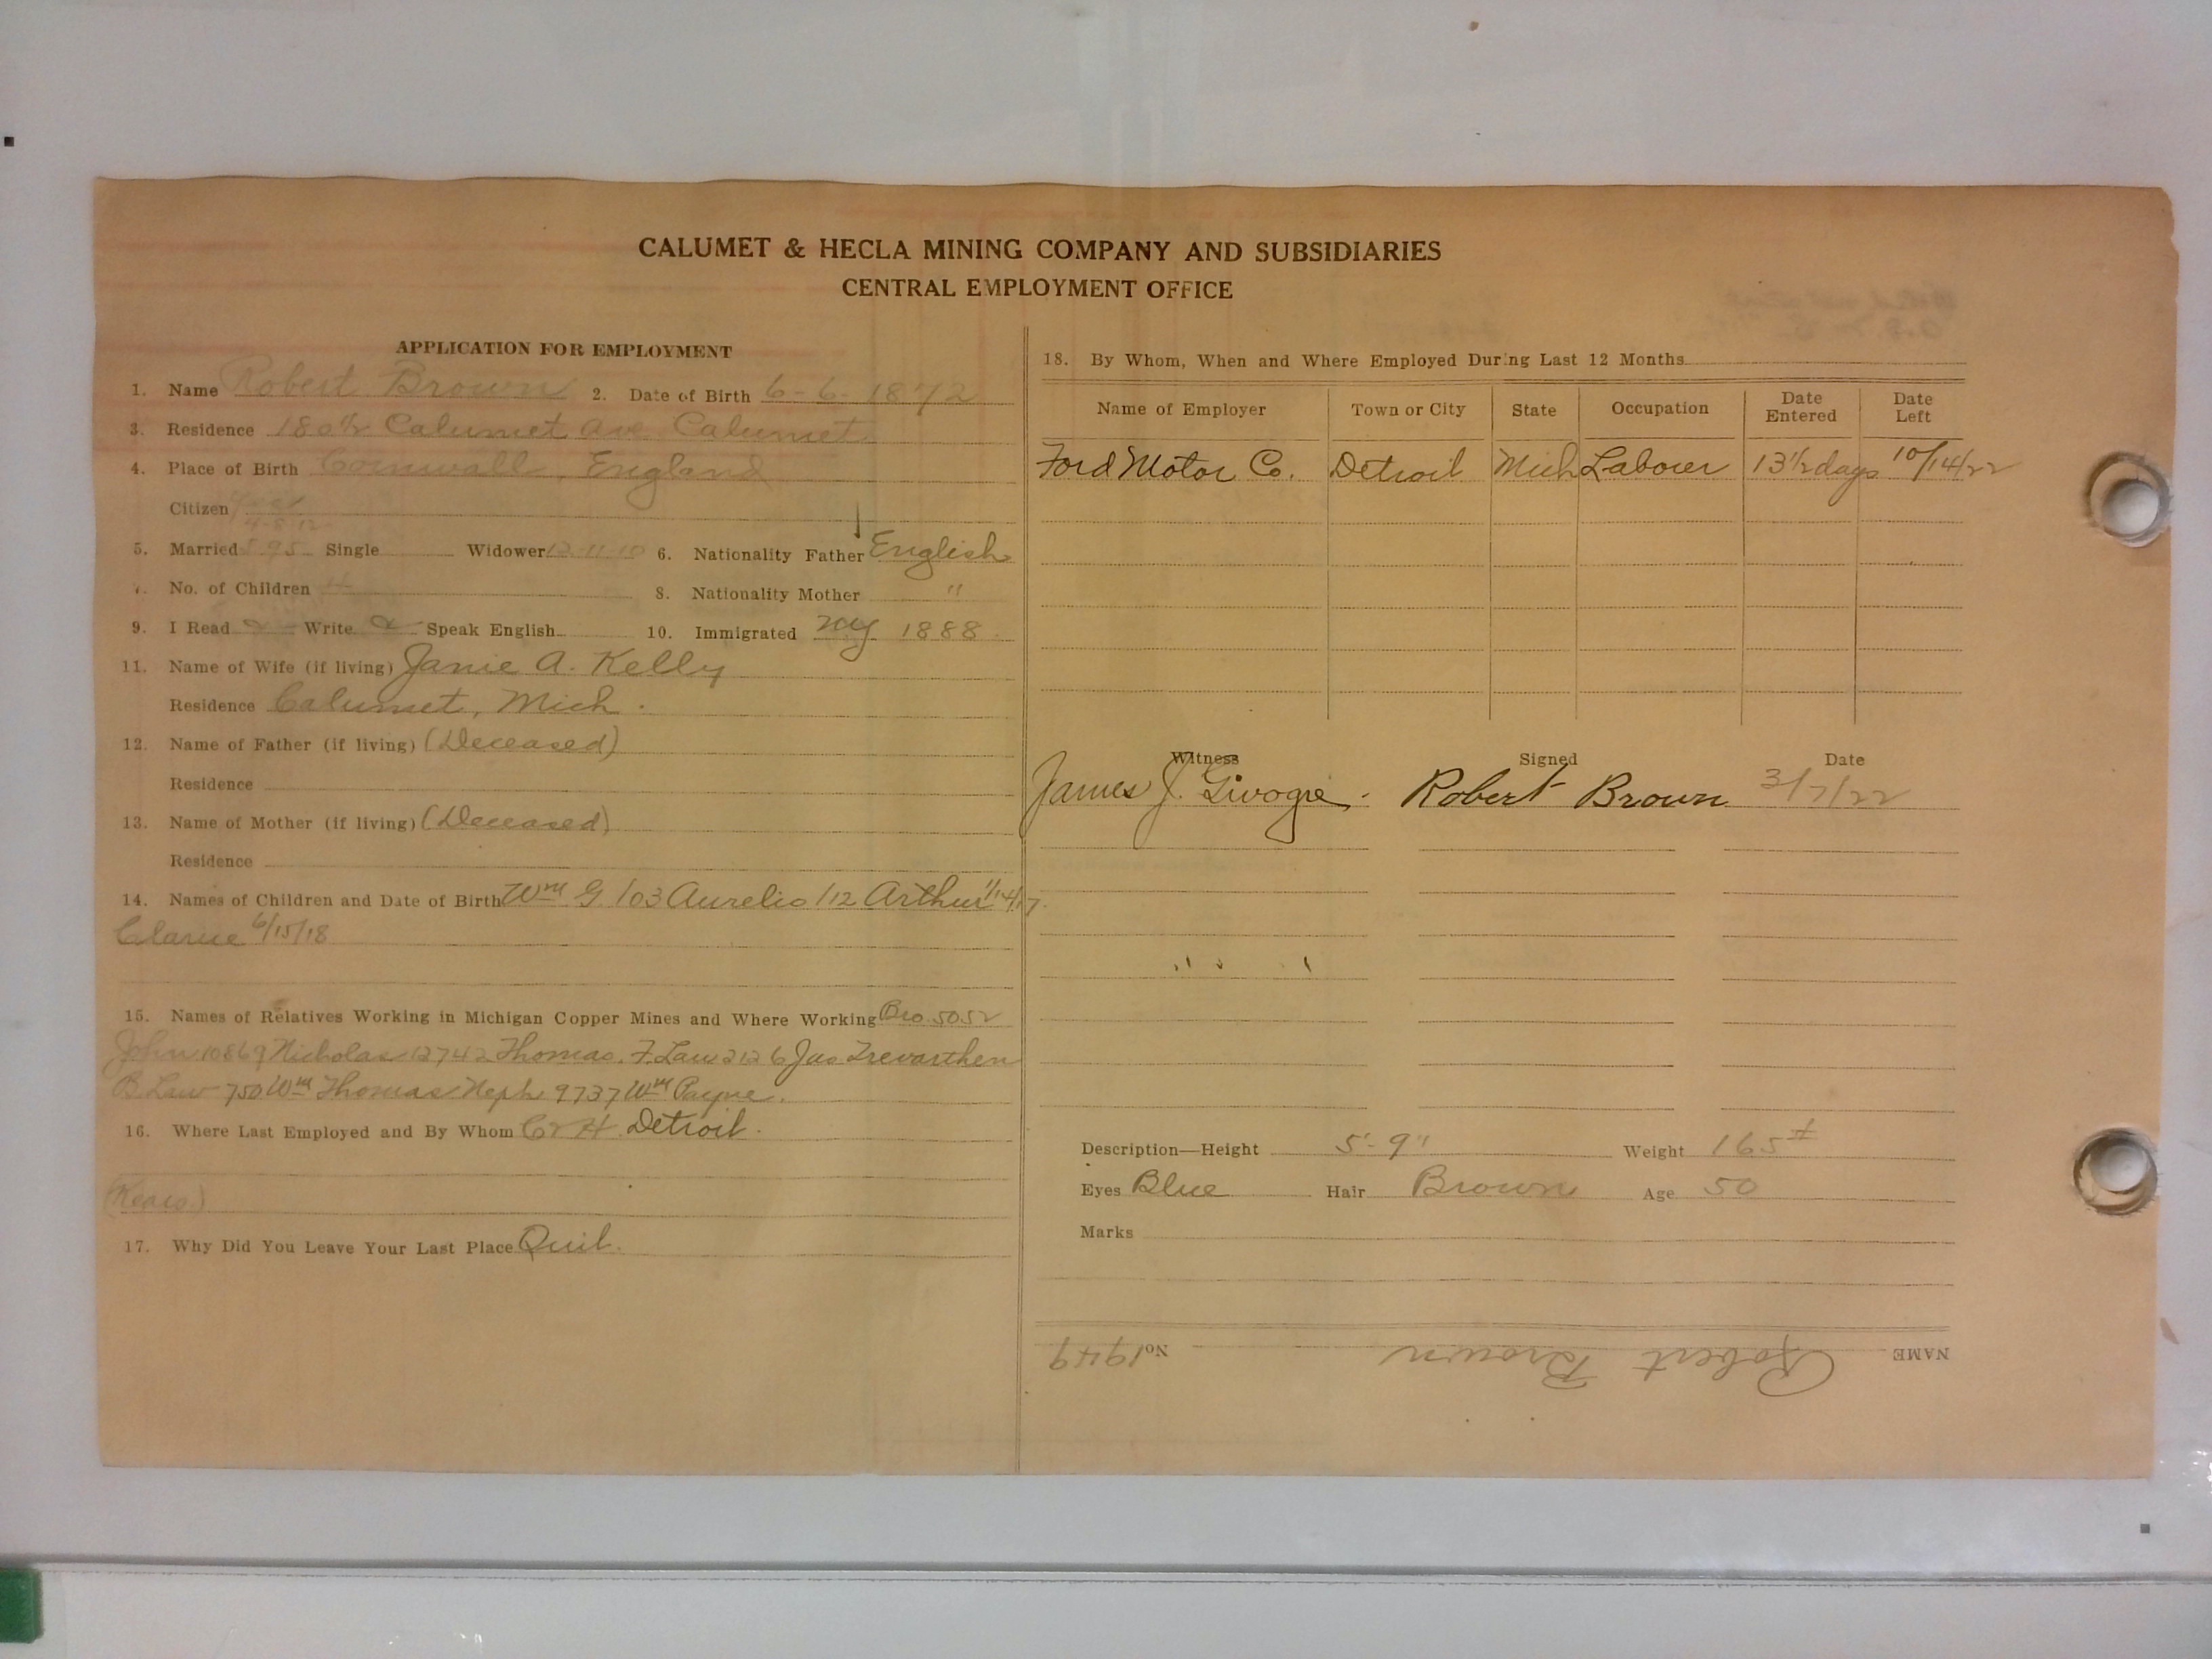 CALUMET & HECLA MINING COMPANY AND SUBSIDIARIES
CENTRAL EMPLOYMENT OFFICE
APPLICATION FOR EMPLOYMENT
1. Name Robert Brown 2. Date of Birth 6-6-1872
3. Residence Calumet Ave Calumet
4. Place of Birth Cornwall, England
Citizen
5. Married Single Widower 12-11-10 6. Nationality Father English
No. of Children 4 8. Nationality Mother "
9. I Read Write Speak English 10. Immigrated 1888
11. Name of Wife (if living) Janie A. Kelly
Residence Calumet, Mich.
12. Name of Father (if living) (Deceased)
Residence
13. Name of Mother (if living) (Deceased)
Residence
14. Names of Children and Date of Birth Wm G /03 Aurelio /12 Arthur
6/15/18
15. Names of Relatives Working in Michigan Copper Mines and Where Working Bro 5052
John 10869 Nicholas 12742 Thomas. F. Law 2126 Jas Trevarthen
B. Law 750 Wm Thomas Neph 9737 Wm Payne.
16. Where Last Employed and By Whom C & H. Detroit.
17. Why Did You Leave Your Last Place Quit.
18. By Whom, When and Where Employed During Last 12 Months
Name of Employer Town or City State Occupation Date Entered Date Left
Ford Motor Co. Detroit Mich Laborer 13 1/2 days 10/14/22
Witness Signed Date
James J. Robert Brown 3/7/22
Description—Height 5'-9" Weight 165#
Eyes Blue Hair Brown Age 50
Marks
NAME Robert Brown No 1949